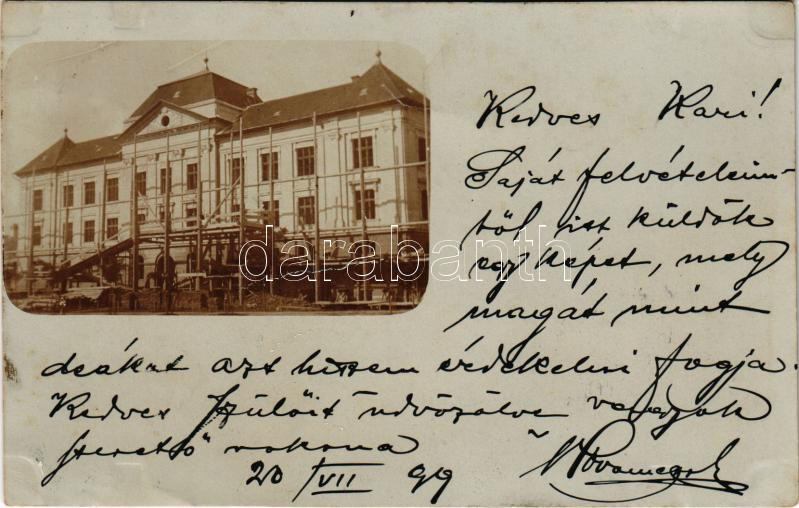 Kedves Kari!
Saját felvételeim-
ből ist küldök
egy képet, mely
magát mint
deákot azt hiszem érdekelni fogja.
Kedves szülőit üdvözölve vagyok
szerető rokona
20/VII 99
darabanth